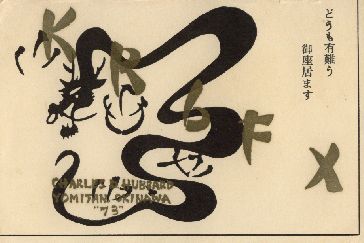 どうも有難う
御座居ます
KR6FX
CHARLES E HUBBARD
YOMITAN, OKINAWA
"73"